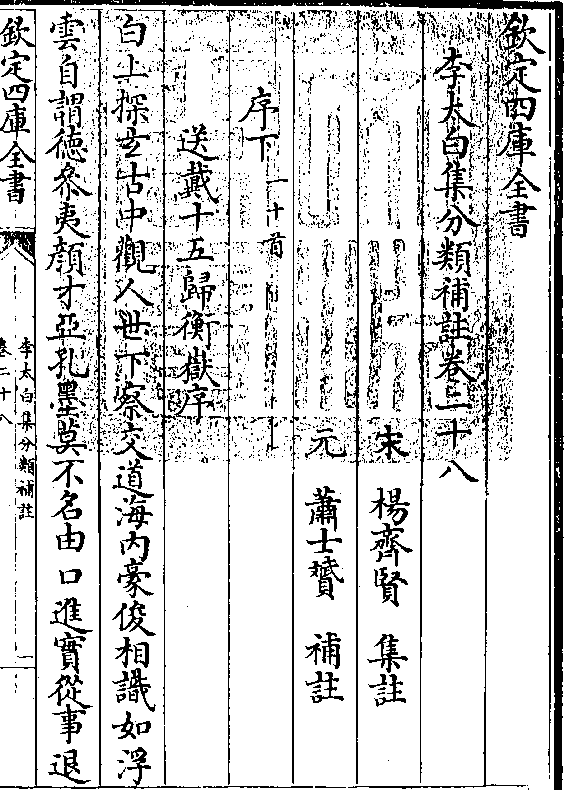 欽定四庫全書
李太白集分類補註卷二十八
宋 楊齊賢 集註
元 蕭士贇 補註
序下 二十首
送戴十五歸衡嶽序
白上探玄古中觀人世下察交道海内豪俊相識如浮
雲自謂德參夷顔才亞孔墨莫不名由口進實從事退
欽定四庫全書
李太白集分類補註
卷二十八
一